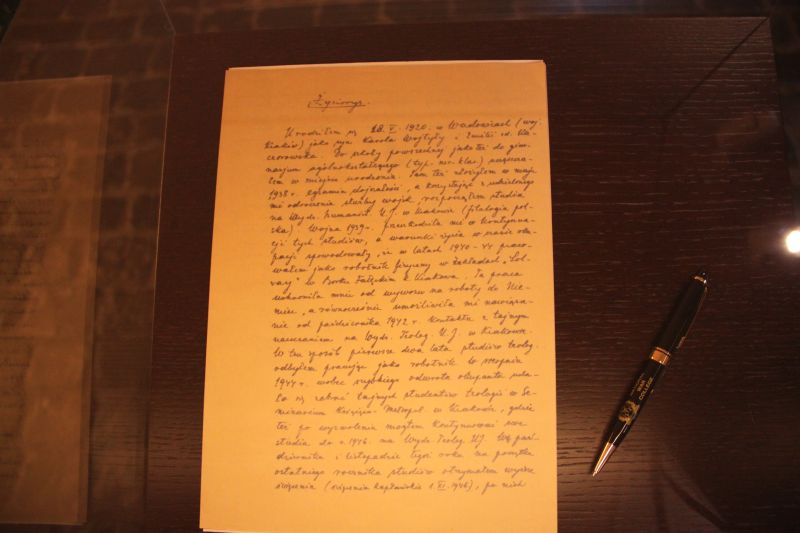 Życiorys.
Urodziłem się 18. V. 1920. w Wadowicach (woj.
Kraków) jako syn Karola Wojtyły i Emilii z d. Ka-
czorowska. Do szkoły powszechnej jako też do gim-
nazjum ogólnokształcącego (typ. neo-klas.) uczęszcza-
łem w miejscu urodzenia. Tam też złożyłem w maju
1938 r. egzamin dojrzałości, a korzystając z udzielonego
mi odroczenia służby wojsk. rozpocząłem studia
na Wydz. Humanist. U. J. w Krakowie (filologia pol-
ska). Wojna 1939 r. przeszkodziła mi w kontynua-
cji tych studiów, a warunki życia w czasie oku-
pacji spowodowały, że w latach 1940-44 praco-
wałem jako robotnik fizyczny w zakładach „Sol-
vay" w Borku Fałęckim k. Krakowa. Ta praca
uchroniła mnie od wywozu na roboty do Nie-
miec, a równocześnie umożliwiła mi nawiąza-
nie od października 1942 r. kontaktu z tajnym
nauczaniem na Wydz. Teolog. U. J. w Krakowie.
W ten sposób pierwsze dwa lata studiów teolog.
odbyłem pracując jako robotnik. W sierpniu
1944 r. wobec rychłego odwrotu okupanta uda-
ło się zebrać tajnych studentów teologii w Se-
minarium Książęco-Metropol. w Krakowie, gdzie
też po wyzwoleniu mogłem kontynuować swe
studia do r. 1946. na Wydz. Teolog. UJ. W paź-
dzierniku i listopadzie tegoż roku na początku
ostatniego rocznika studiów otrzymałem wyższe
święcenia (święcenia kapłańskie 1. XI. 1946), po nich
COLLEGE